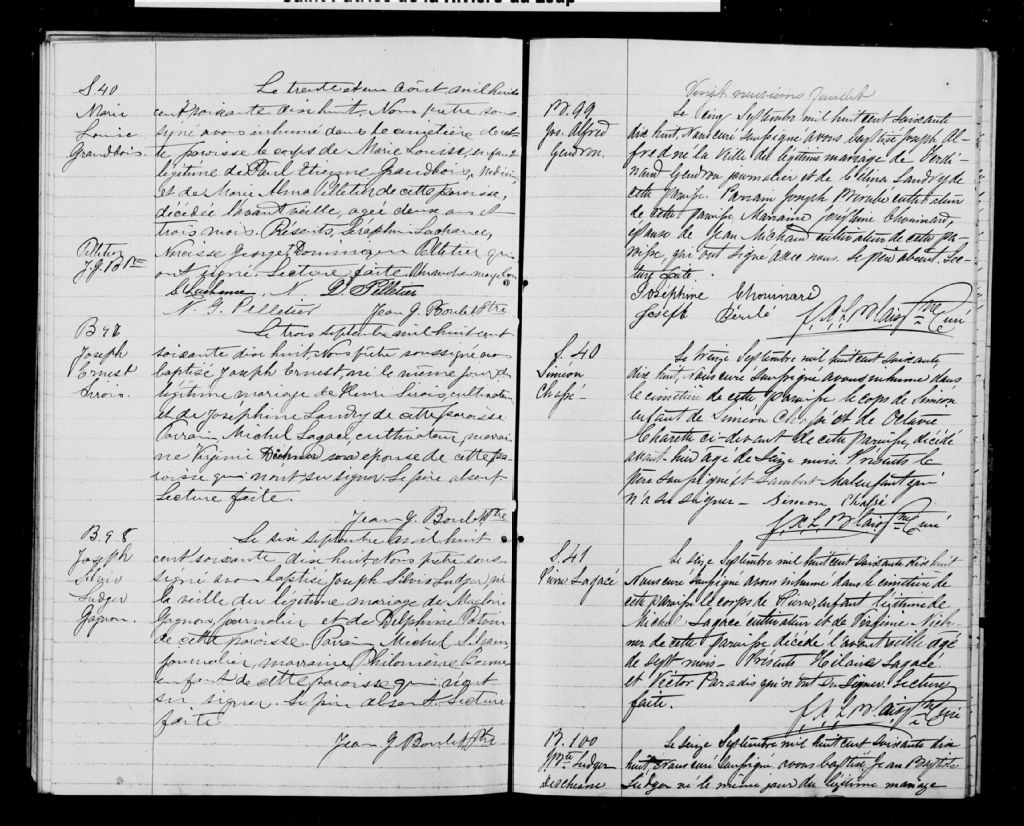 Saint Patrice de la Rivière du Loup
S. 40
Marie
Louise
Grandbois.
Le trente et un Août mil huit
cent soixante dix huit, Nous prêtre sous
signé avons inhumé dans le cimetière de cet
te paroisse le corps de Marie Louise, enfant
légitime de Paul Etienne Grandbois, Médecin
et de Marie Alma Pelletier de cette paroisse,
décédée l'avant veille, agée de un an et
trois mois. Présents, Séraphin Lachance,
Narcisse Georges Pelletier qui
ont signé. Lecture faite.
S. Lachance. N D. Pelletier
N. G. Pelletier Jean G. Boulet Ptre
B 97
Joseph
Ernest
Sirois.
Le trois septembre mil huit cent
soixante dix huit Nous prêtre soussigné avons
baptisé Joseph Ernest, né le même jour du
légitime mariage de Henri Sirois, cultivateur
et de Josephine Landry de cette paroisse
Parrain Michel Lagacé, cultivateur, marrai
ne Virginie son épouse de cette pa
roisse qui n'ont su signer. Le père absent.
Lecture faite.
Jean G. Boulet Ptre
B. 98
Joseph
Silvio
Ludger
Gagnon.
Le six septembre mil huit
cent soixante dix huit Nous prêtre sous
signé avons baptisé Joseph Silvio Ludger, né
la veille du légitime mariage de Magloire
Gagnon, journalier et de Delphine
de cette paroisse Parrain Michel
journalier, marraine Philomène
enfant de cette paroisse qui n'ont
su signer. Le père absent. Lecture
faite.
Jean G Boulet Ptre
Vingt neuvième feuillet
B. 99
Jos. Alfred
Gendron.
Le cinq Septembre mil huit cent soixante
dix huit, nous curé soussigné avons baptisé Joseph Al-
fred né la veille du légitime mariage de Ferdi
nand Gendron journalier et de Célina Landry de
cette paroisse. Parrain Joseph Bérubé cultivateur
de cette paroisse Marraine Josephine Chouinard,
épouse de Jean Michaud cultivateur de cette pa
roisse, qui ont signé avec nous. Le père absent. Lec-
ture faite.
Joséphine Chouinard
Joseph Bérubé
S. 40
Siméon
Chassé
Le treize Septembre mil huit cent soixante
dix huit, nous curé soussigné avons inhumé dans
le cimetière de cette paroisse le corps de Siméon
enfant de Siméon Chassé et de Octavie
Charette ci-devant de cette paroisse, décédé
avant hier agé de seize mois. Présents le
père soussigné et Lambert Malenfant qui
n'a su signer - Simeon Chassé
S. 41
Pierre Lagacé
Le seize Septembre mil huit cent soixante dix huit
Nous curé soussigné avons inhumé dans le cimetière de
cette paroisse le corps de Pierre, enfant légitime de
Michel Lagacé cultivateur et de
de cette paroisse décédé l'avant veille agé
de sept mois - Présents Hilaire Lagacé
et Victor Paradis qui n'ont su signer. Lecture
faite.
B. 100
Ludger
Le seize Septembre mil huit cent soixante dix
huit nous curé soussigné avons baptisé Jean Baptiste
Ludger né le même jour du légitime mariage